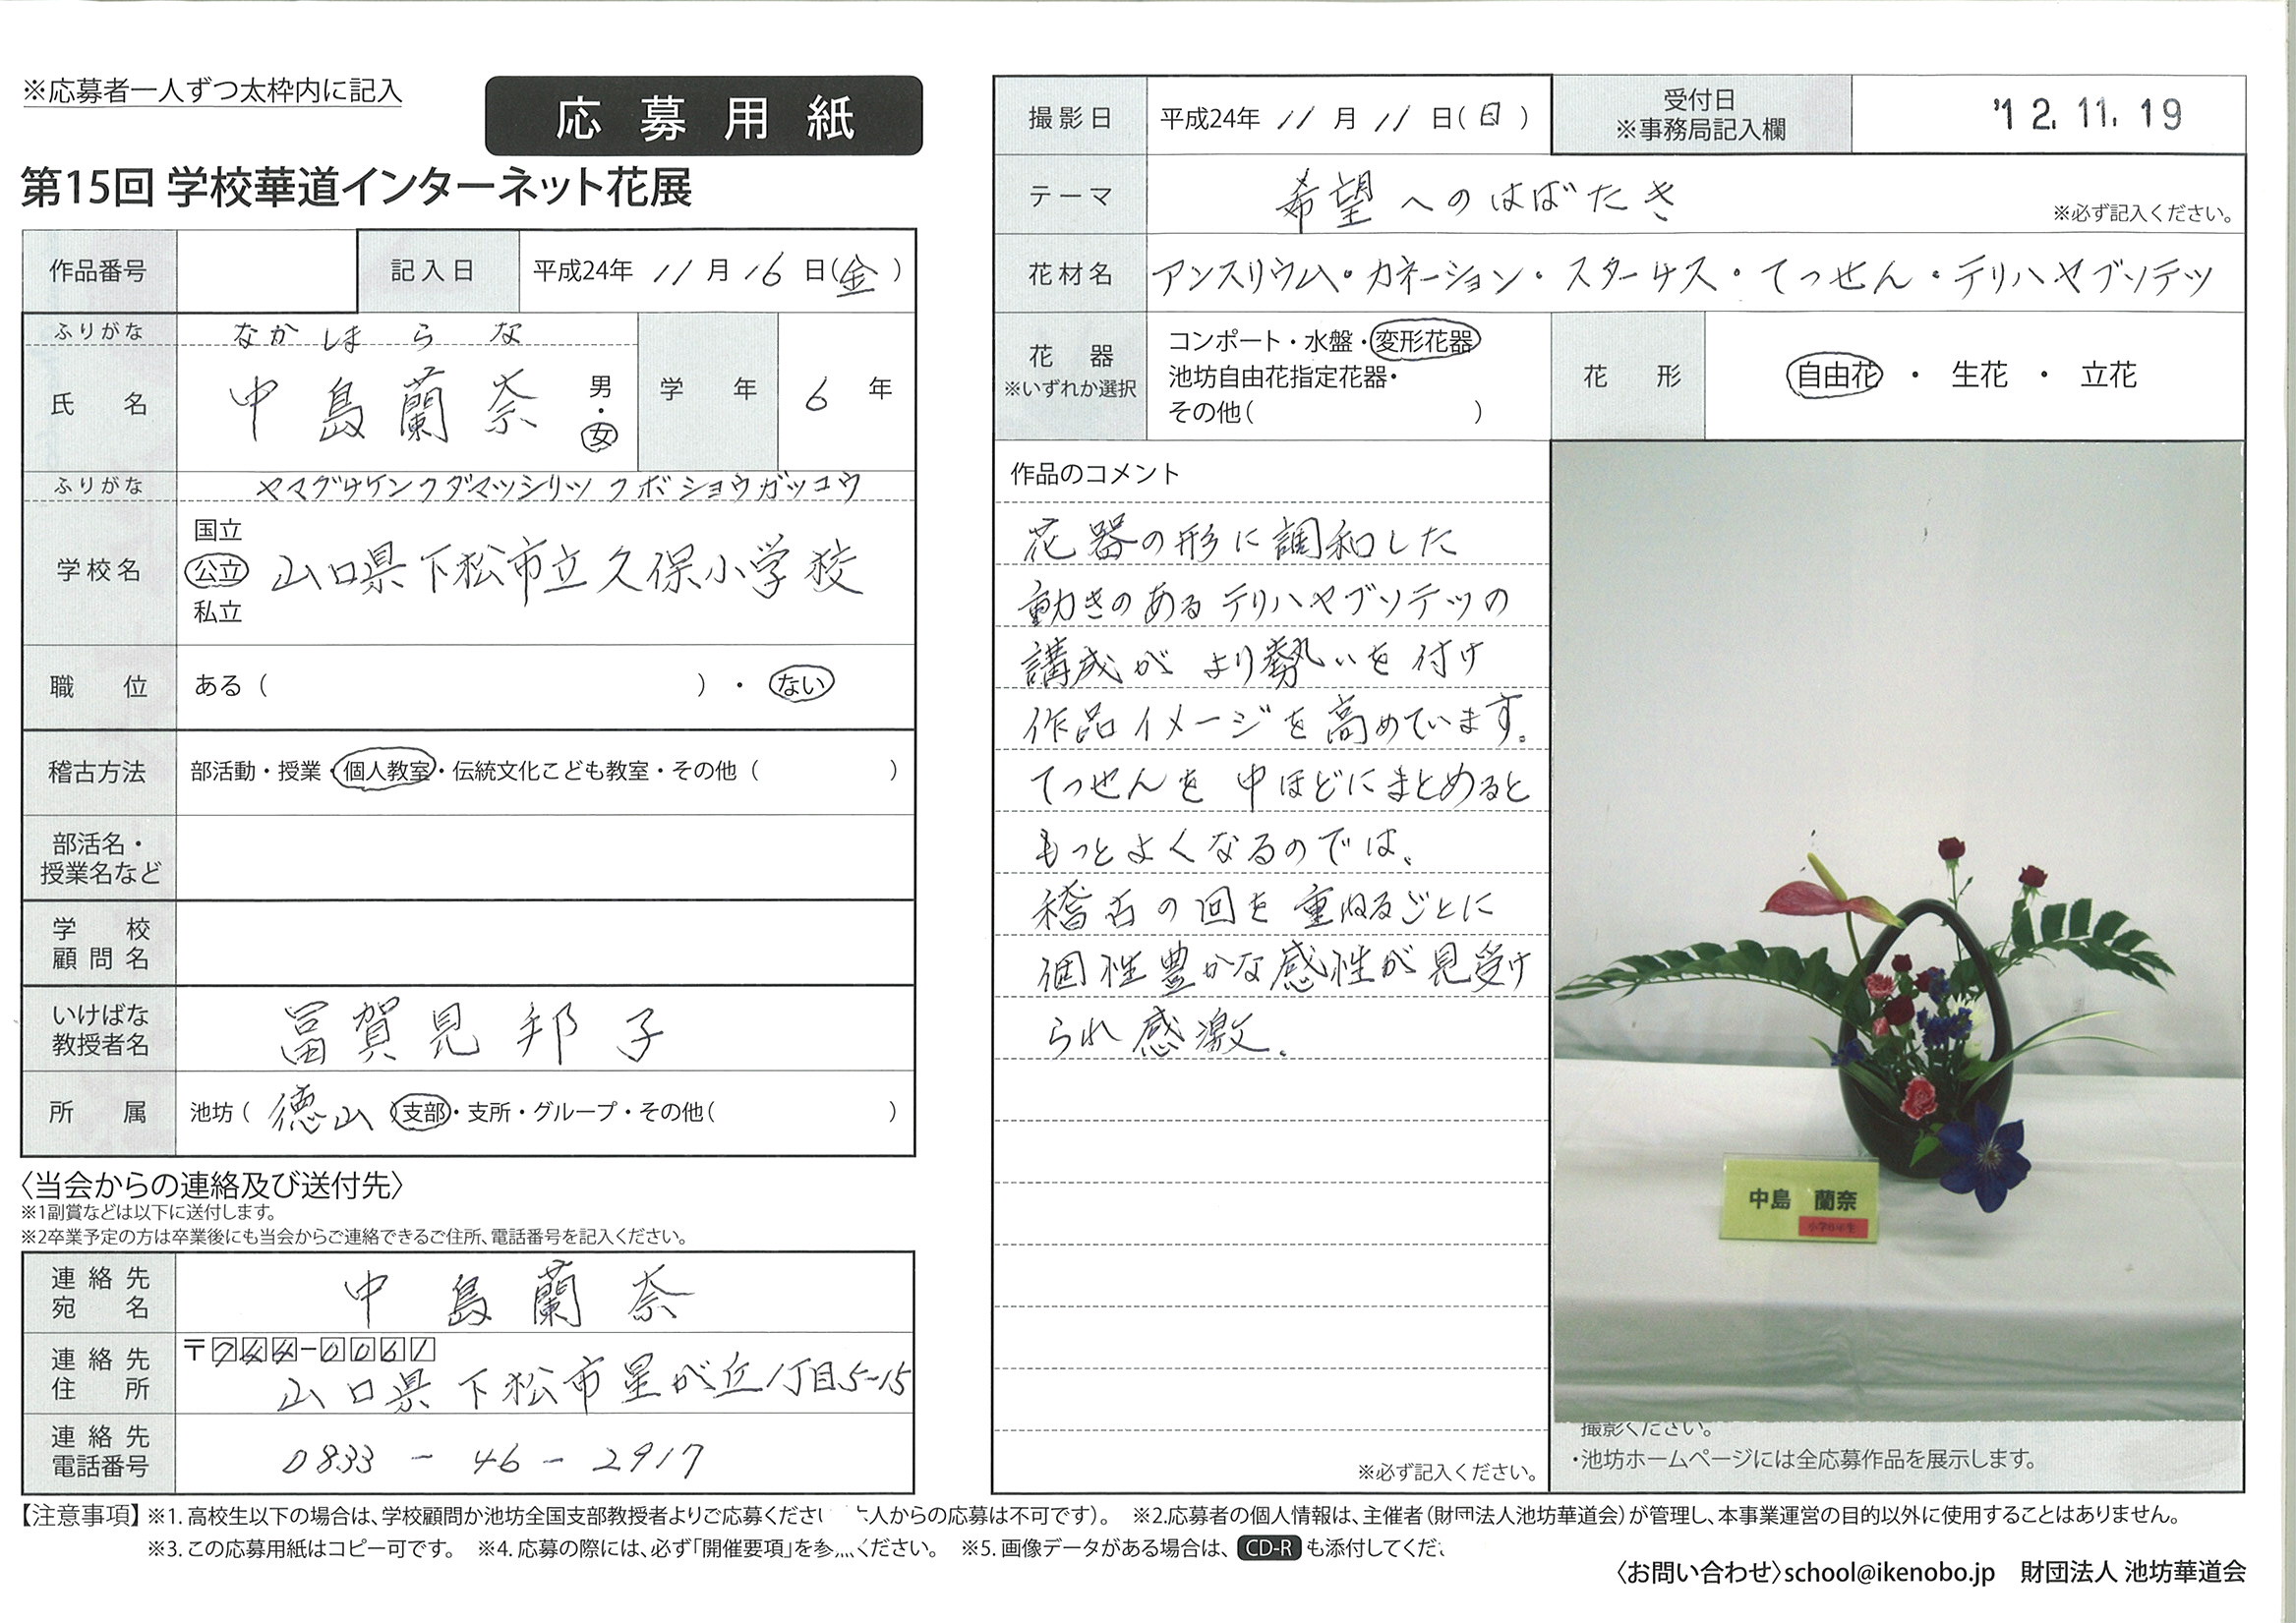 ※応募者一人ずつ太枠内に記入
応募用紙
第15回 学校華道インターネット花展
作品番号
記入日 平成24年 11月 16日(金)
ふりがな なかしま らな
氏名 中島蘭奈 男・女
学年 6年
ふりがな ヤマグチケンクダマツシリツ クボショウガッコウ
学校名 国立 公立 私立 山口県下松市立久保小学校
職位 ある( )・ない
稽古方法 部活動・授業・個人教室・伝統文化こども教室・その他( )
部活名・授業名など
学校顧問名
いけばな教授者名 冨賀見邦子
所属 池坊(徳山 支部・支所・グループ・その他( )
〈当会からの連絡及び送付先〉
※1副賞などは以下に送付します。
※2卒業予定の方は卒業後にも当会からご連絡できるご住所、電話番号を記入ください。
連絡先宛名 中島蘭奈
連絡先住所 〒744-0061
山口県下松市星が丘1丁目5-15
連絡先電話番号 0833-46-2917
撮影日 平成24年 11月 11日(日)
受付日 ※事務局記入欄 '12.11.19
テーマ 希望へのはばたき ※必ず記入ください。
花材名 アンスリウム・カネーション・スターチス・てっせん・テリハヤブソテツ
花器 ※いずれか選択
コンポート・水盤・変形花器
池坊自由花指定花器・
その他( )
花形 自由花・生花・立花
作品のコメント
花器の形に調和した
動きのあるテリハヤブソテツの
講成がより勢いを付け
作品イメージを高めています。
てっせんを中ほどにまとめると
もっとよくなるのでは、
稽古の回を重ねるごとに
個性豊かな感性が見受け
られ感激。
※必ず記入ください。
中島 蘭奈
小学6年生
撮影ください。
・池坊ホームページには全応募作品を展示します。
【注意事項】※1.高校生以下の場合は、学校顧問か池坊全国支部教授者よりご応募ください 人からの応募は不可です)。 ※2.応募者の個人情報は、主催者(財団法人池坊華道会)が管理し、本事業運営の目的以外に使用することはありません。
※3.この応募用紙はコピー可です。 ※4.応募の際には、必ず「開催要項」を参 ください。 ※5.画像データがある場合は、CD-Rも添付してくだ
〈お問い合わせ〉school@ikenobo.jp 財団法人 池坊華道会